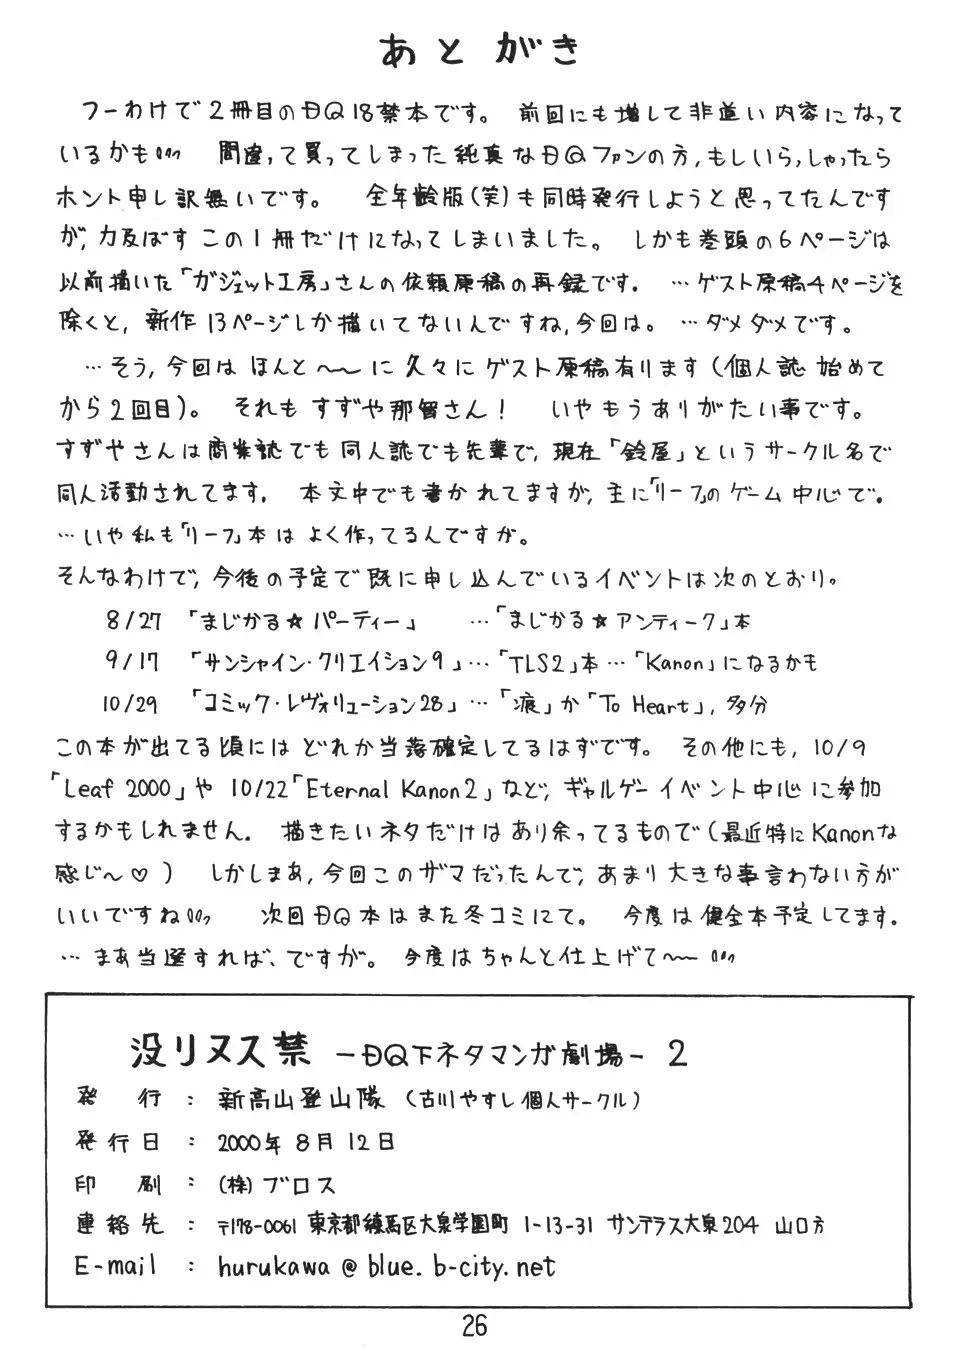 あとがき
つーわけで2冊目のDQ18禁本です。 前回にも増して非道い内容になって
いるかも 間違って買ってしまった純真なDQファンの方,もしいらっしゃったら
ホント申し訳無いです。 全年齢版(笑)も同時発行しようと思ってたんです
が,力及ばずこの1冊だけになってしまいました。 しかも巻頭の6ページは
以前描いた「ガジェット工房」さんの依頼原稿の再録です。 …ゲスト原稿4ページを
除くと,新作13ページしか描いてないんですね,今回は。…ダメダメです。
…そう,今回はほんと〜〜に久々にゲスト原稿有ります(個人誌始めて
から2回目)。 それもすずや那智さん! いやもうありがたい事です。
すずやさんは商業誌でも同人誌でも先輩で,現在「鈴屋」というサークル名で
同人活動されてます。 本文中でも書かれてますが,主に「リーフ」のゲーム中心で。
…いや私も「リーフ」本はよく作ってるんですが。
そんなわけで,今後の予定で既に申し込んでいるイベントは次のとおり。
8/27 「まじかる☆パーティー」 …「まじかる☆アンティーク」本
9/17 「サンシャイン・クリエイション9」…「TLS2」本…「Kanon」になるかも
10/29 「コミック・レヴォリューション28」…「痕」か「To Heart」,多分
この本が出てる頃にはどれか当落確定してるはずです。 その他にも,10/9
「Leaf 2000」や10/22「Eternal Kanon2」など,ギャルゲーイベント中心に参加
するかもしれません。 描きたいネタだけはあり余ってるもので(最近特にKanonな
感じ〜♡) しかしまあ,今回このザマだったんで,あまり大きな事言わない方が
いいですね 次回DQ本はまた冬コミにて。 今度は健全本予定してます。
…まあ当選すれば,ですが。 今度はちゃんと仕上げて〜〜
没リヌス禁 -DQ下ネタマンガ劇場- 2
発行 : 新高山登山隊 (古川やすし個人サークル)
発行日 : 2000年8月12日
印刷 : (株)ブロス
連絡先 : 〒178-0061 東京都練馬区大泉学園町 1-13-31 サンテラス大泉204 山口方
E-mail : hurukawa@blue.b-city.net
26